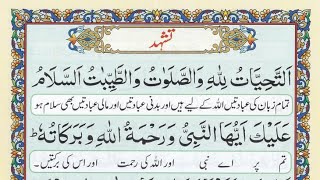 تشہد
اَلتَّحِيَّاتُ لِلّٰهِ وَالصَّلَوٰتُ وَالطَّيِّبٰتُ اَلسَّلَامُ
تمام زبان کی عبادتیں اللہ کے لیے ہیں اور بدنی عبادتیں اور مالی عبادتیں بھی سلام ہو
عَلَيْكَ اَيُّهَا النَّبِيُّ وَرَحْمَةُ اللّٰهِ وَبَرَكَاتُهٗ ؕ
تم پر اے نبی اور اللہ کی رحمت اور اس کی برکتیں۔